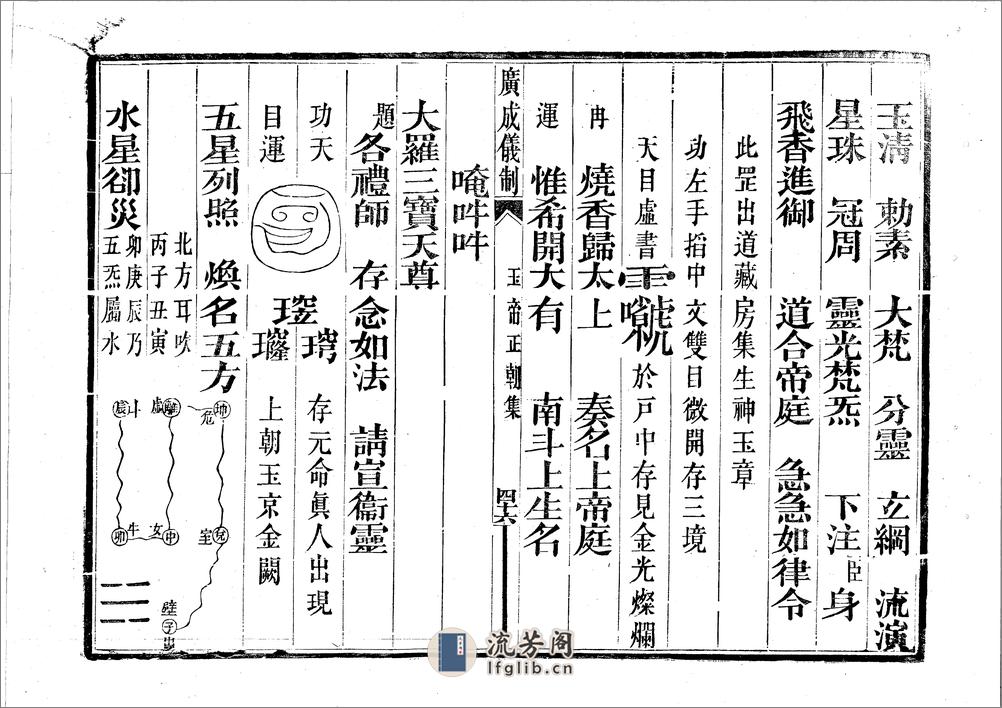 玉清 勅素 大梵 分靈 玄綱 流演
星珠 冠周 靈光梵炁 下注臣身
飛香進御 道合帝庭 急急如律令
此罡出道藏房集生神玉章
功左手搯中文雙目微開存三境
天目虛書 於戸中存見金光燦爛
冉 燒香歸太上 奏名上帝庭
運 惟希開大有 南斗上生名
廣成儀制 玉帝正朝集 四十六
唵吽吽
大羅三寶天尊
題 各禮師 存念如法 請宣衞靈
功天 存元命眞人出現
目運 上朝玉京金闕
五星列照 煥名五方
水星卻災
北方耳吹
丙子丑寅
卯庚辰乃
五炁屬水
坤 危 兌 室 壁
離 虛 中 女
震 斗 牛
流芳阁
lfglib.cn